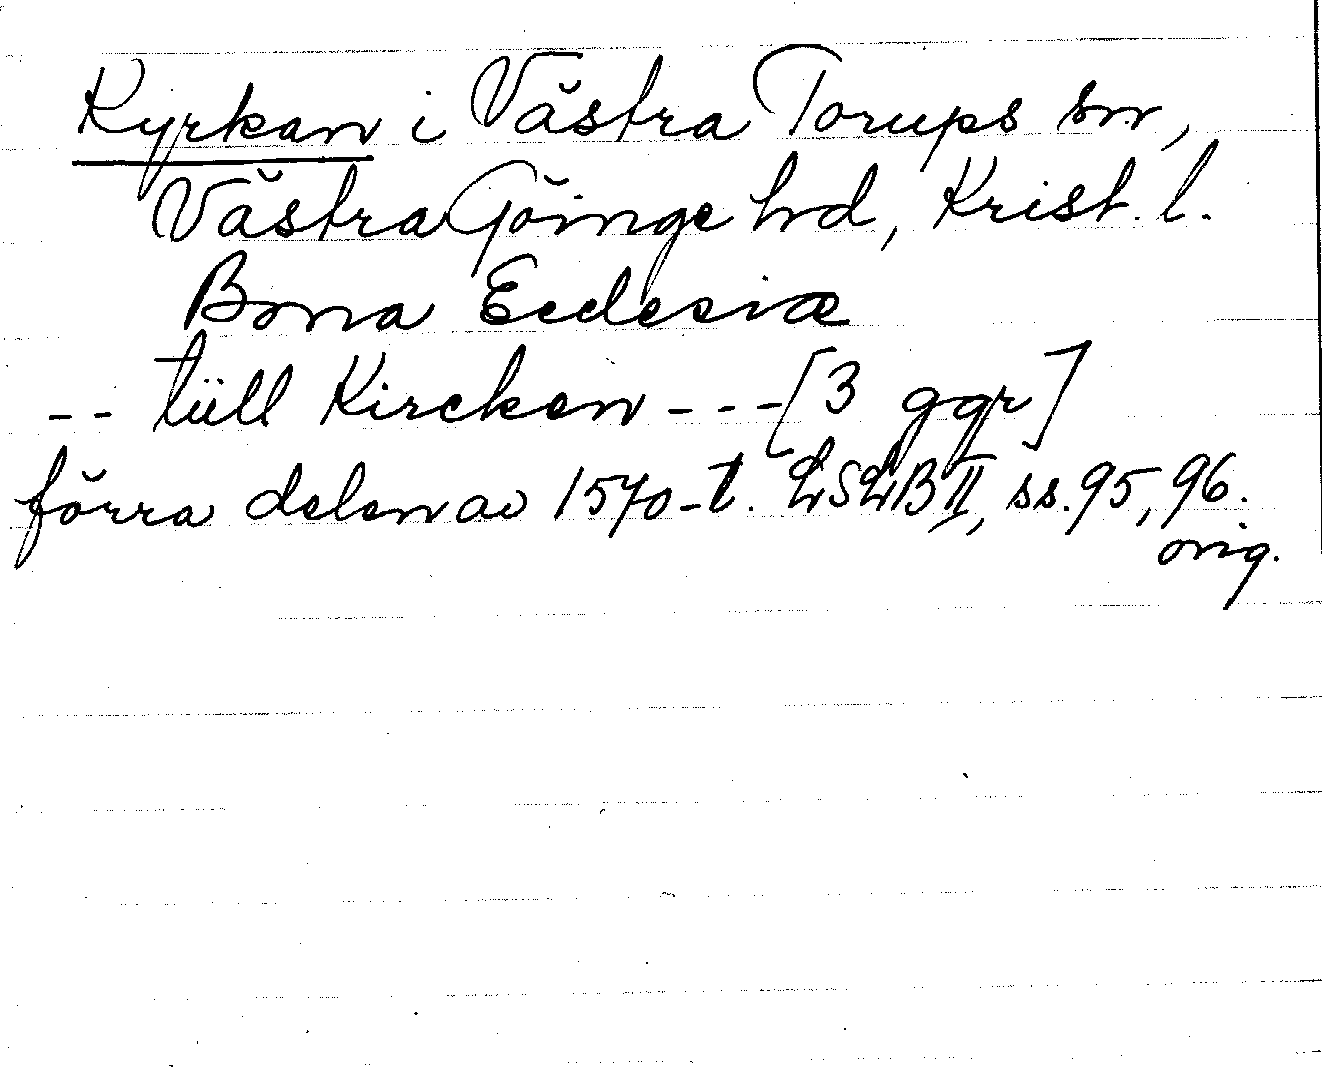 Kyrkan i Västra Torups sn,
Västra Göinge hd, Krist. l.
Bona Ecclesiæ
-- tüll Kircken --- [3 ggr]
förra delen av 1570-t. LSLB II, ss. 95, 96.
orig.